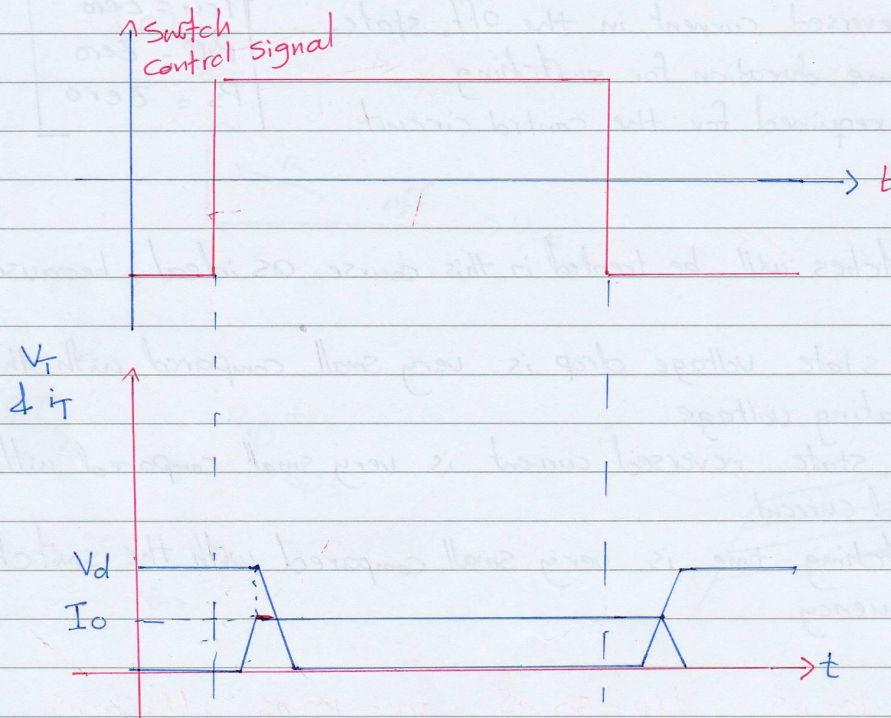 Switch
control signal
t
VT
& iT
Vd
Io
t